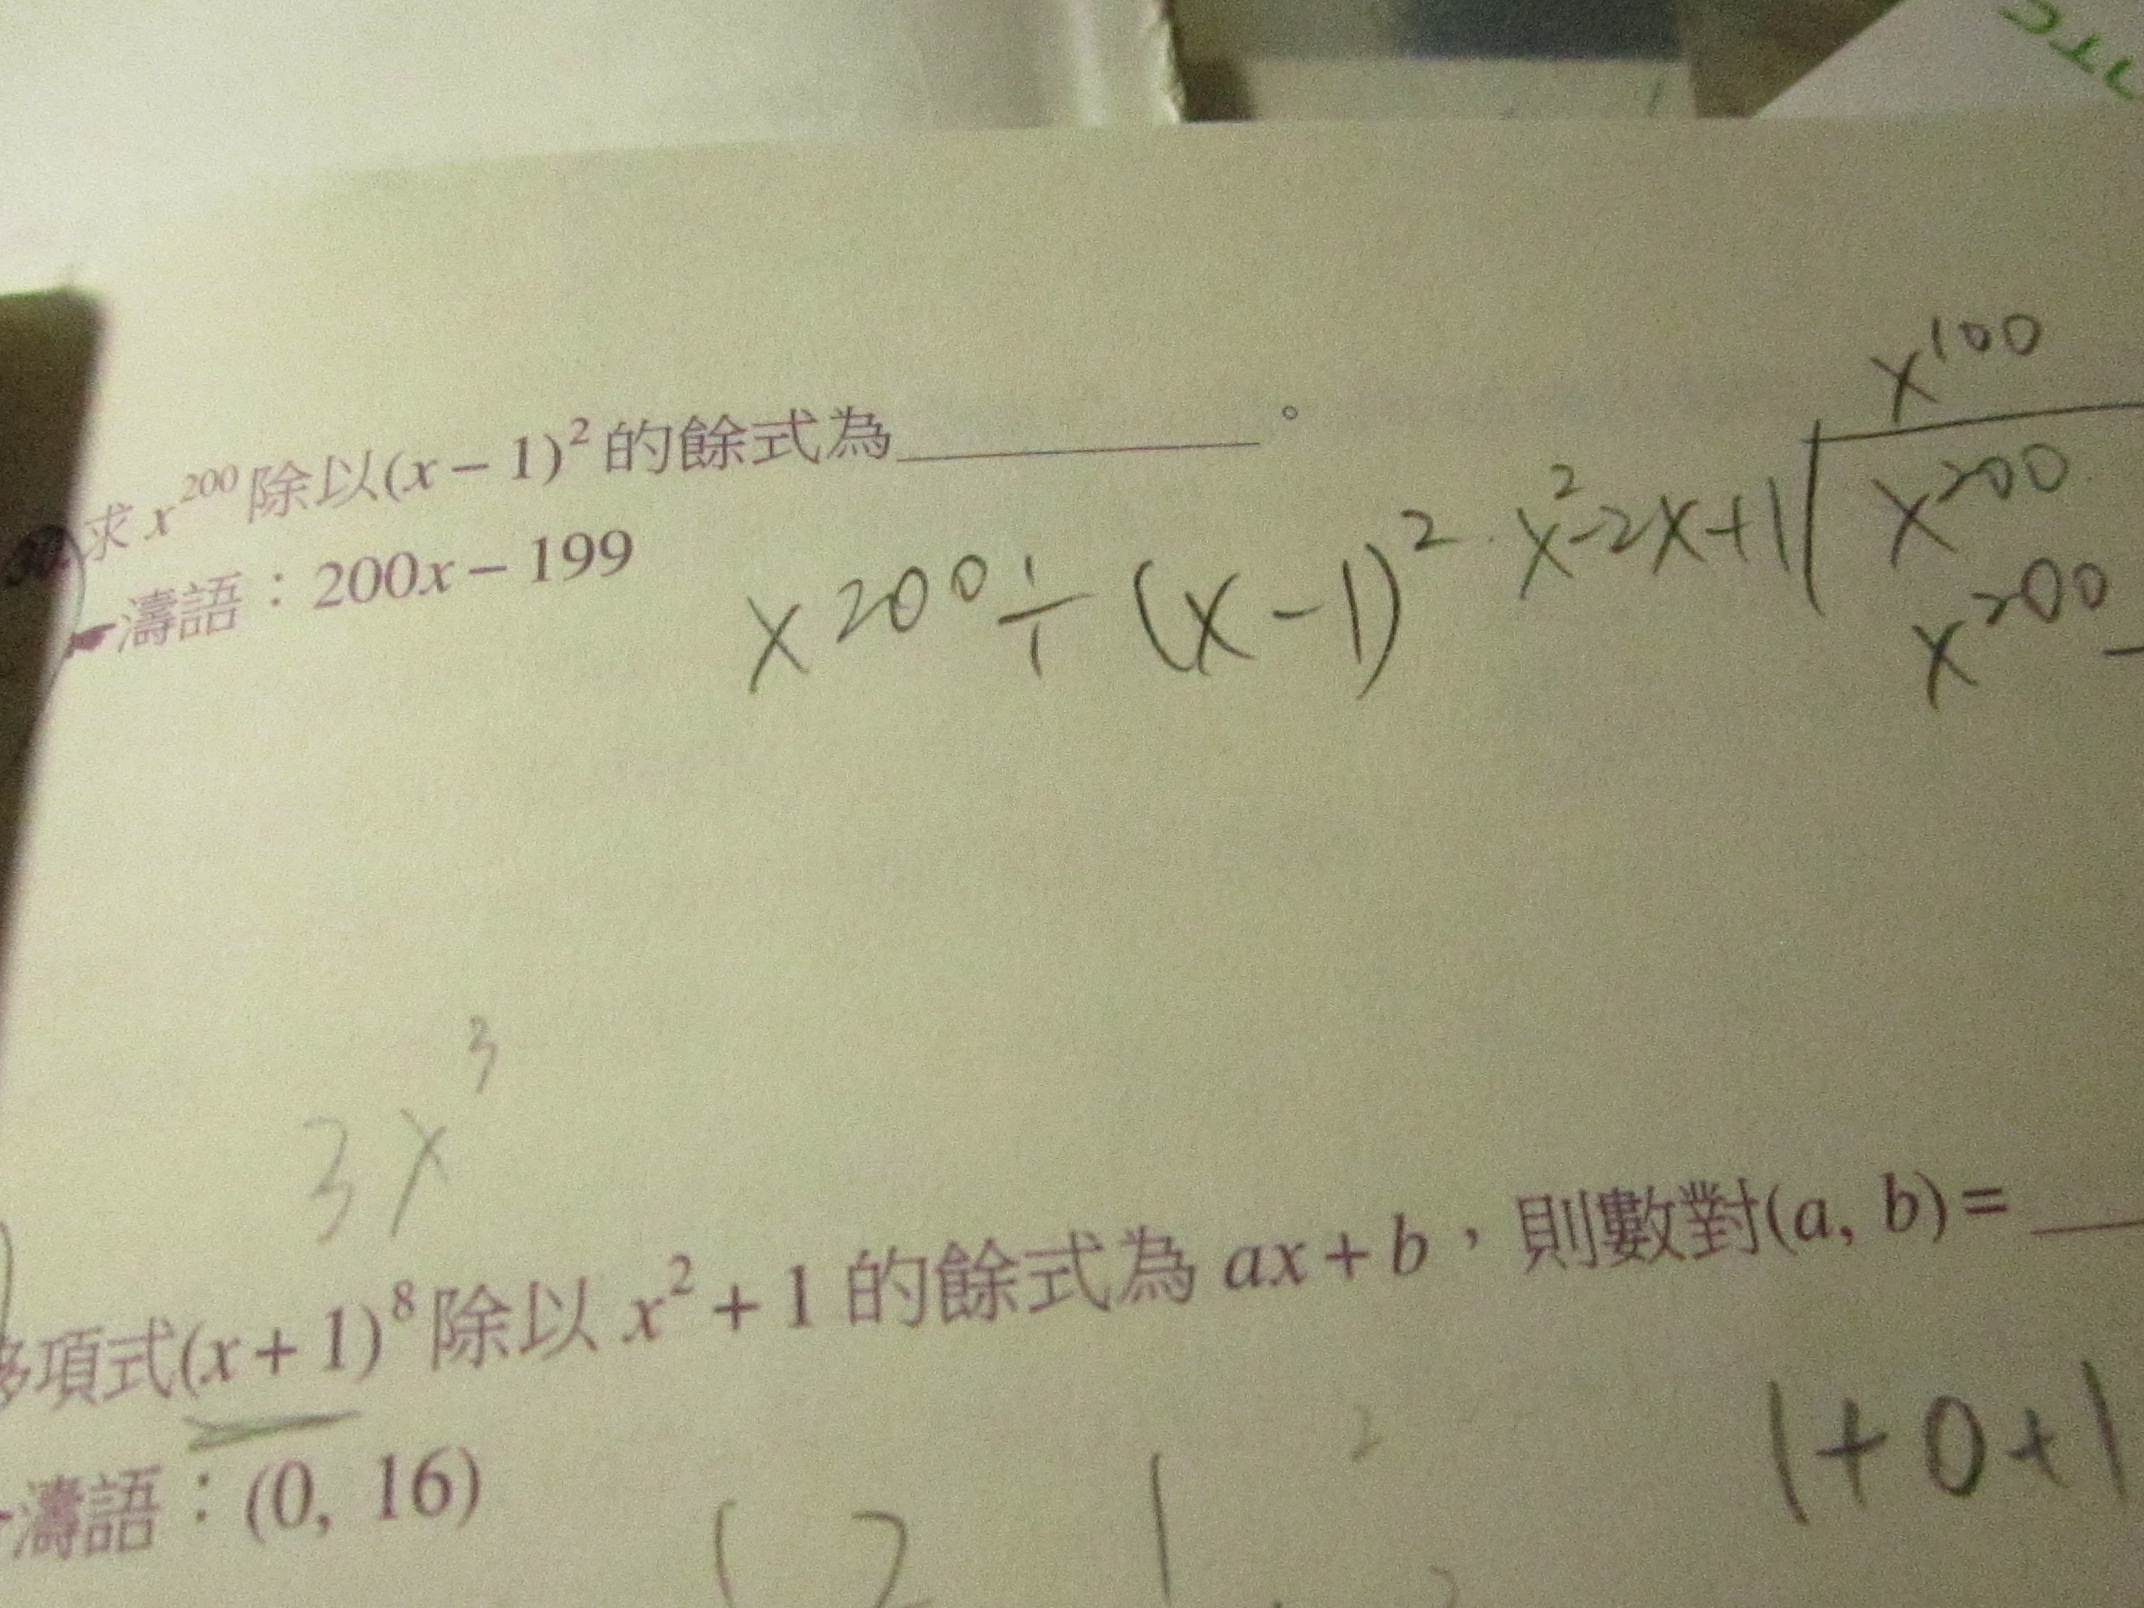 求 x²⁰⁰ 除以(x－1)² 的餘式為＿＿＿＿＿＿。
濤語：200x－199
x200÷(x-1)²
x²-2x+1
x¹⁰⁰
x²⁰⁰
x²⁰⁰-
3x³
多項式(x＋1)⁸ 除以 x²＋1 的餘式為 ax＋b，則數對(a, b)＝＿＿
濤語：(0, 16)
1+0+1